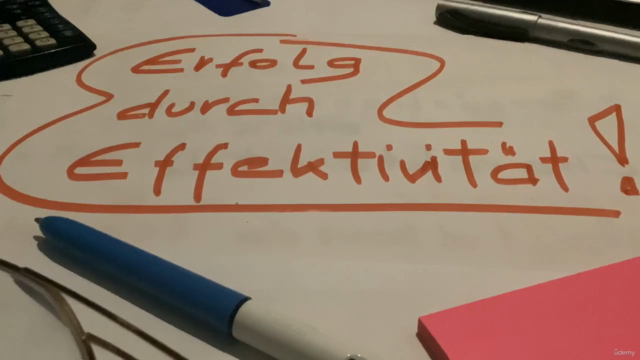 Erfolg
durch
Effektivität!
ûdemy